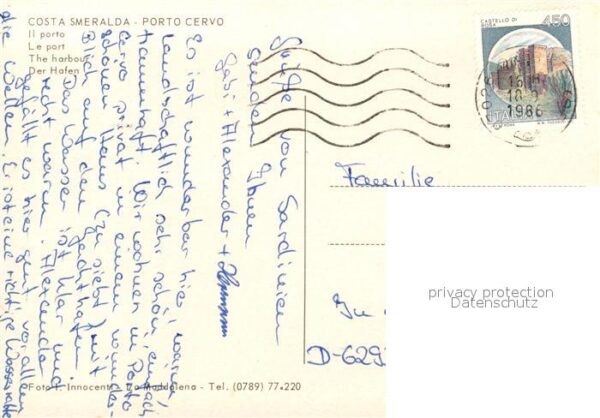 COSTA SMERALDA - PORTO CERVO
Il porto
Le port
The harbour
Der Hafen
CASTELLO DI
BOSA
450
ITA
18
1986
Grüße von Sardinien
senden Ihnen
Gabi + Alexander +
Es ist wunderbar hier, warm,
landschaftlich sehr schön, einfach
traumhaft. Wir wohnen in Porto
Cervo privat in einem wunder-
schönen Haus (zu siebt) mit
Blick auf den Yachthafen.
Das Wasser ist klar und
recht warm. Alexander
gefällt es hier gut, vor allem
die Wellen. Er ist eine richtige Wasserratte
Familie
D-629
privacy protection
Datenschutz
Foto I. Innocenti - La Maddalena - Tel. (0789) 77.220